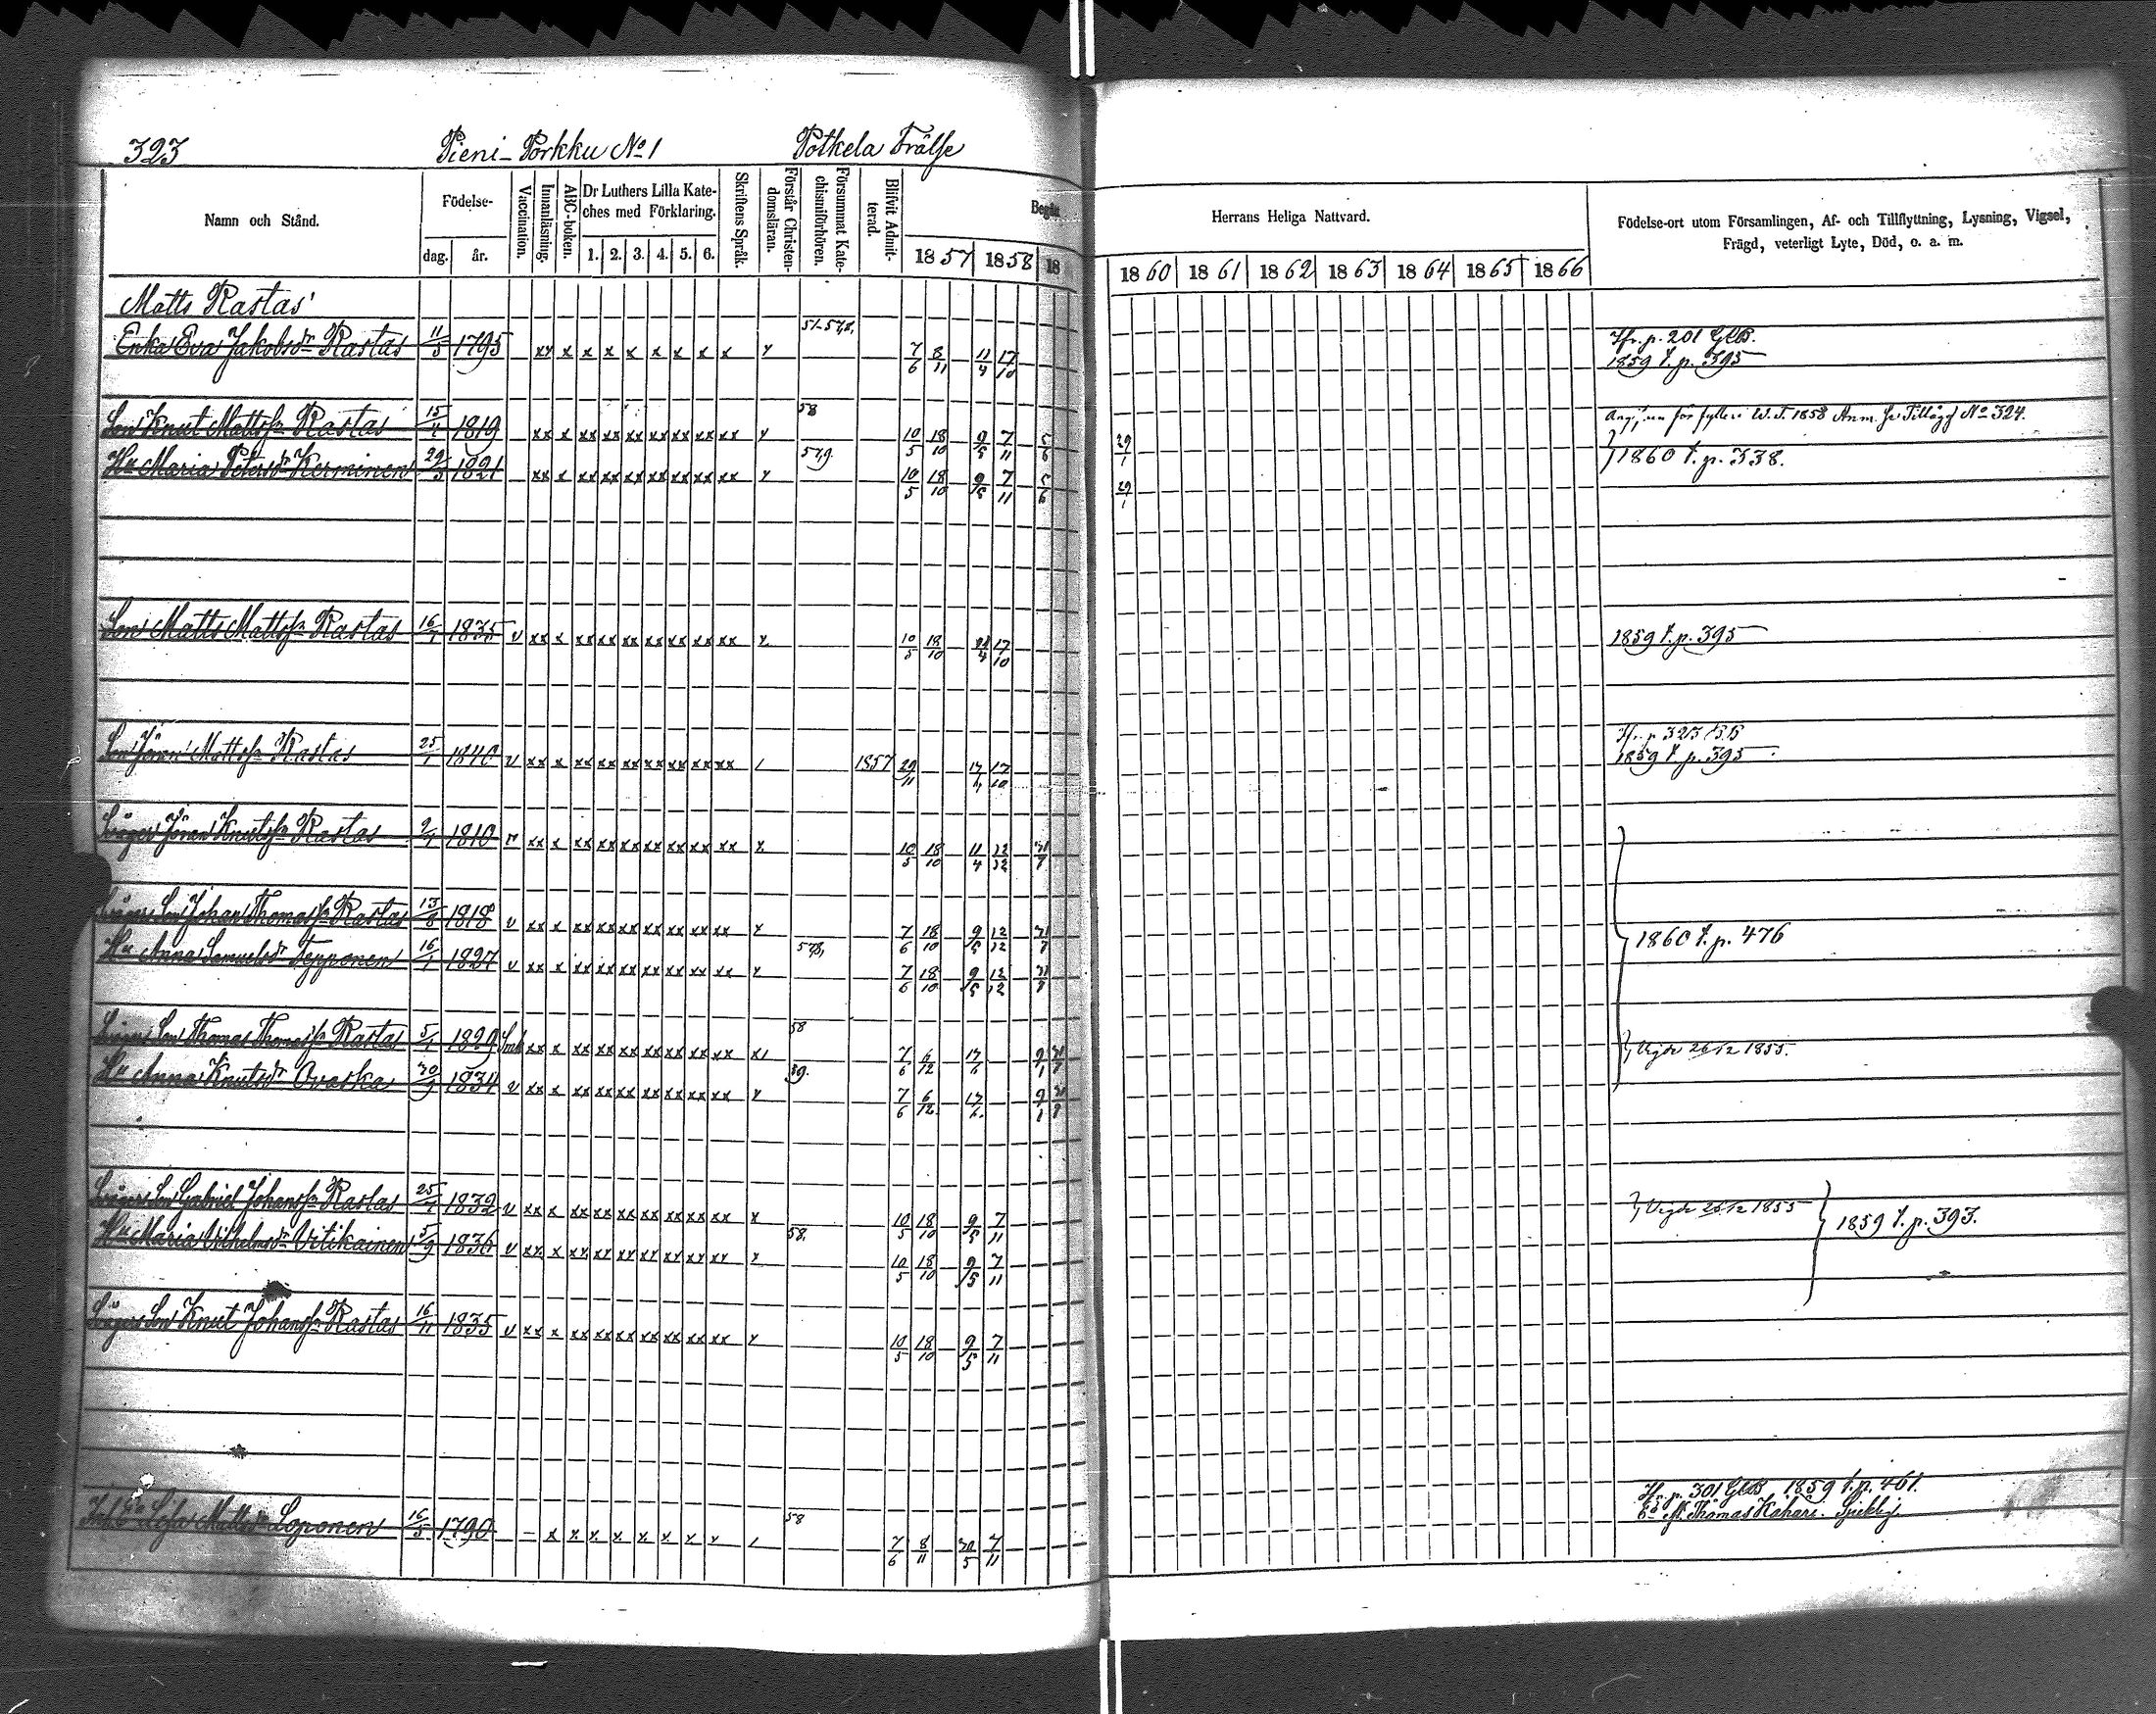 323 Pieni-Porkku No 1 Potkela Frälse
Namn och Stånd. Födelse- dag. år. Vaccination. Innanläsning. ABC-boken. Dr Luthers Lilla Kateches med Förklaring. 1. 2. 3. 4. 5. 6. Skriftens Språk. Förstår Christendomsläran. Försummat Katechismiförhören. Blifvit Admitterad. Begått Herrans Heliga Nattvard. Födelse-ort utom Församlingen, Af- och Tillflyttning, Lysning, Vigsel, Frägd, veterligt Lyte, Död, o. a. m.
1857 1858 18 1860 1861 1862 1863 1864 1865 1866
Matts Rastas'
Enka Eva Jakobsdr Rastas 11/5 1795 xy x x x x x x x x y 51-57,8. 7/6 8/11 11/4 17/10 Ifr. p. 201 GKB.
1859 t. p. 395
Son Knut Mattss Rastas 15/4 1819 xx x xx xx xx xx xx xx xx y 58 10/5 18/10 9/5 7/11 5/6 29/1 för fylleri W.T. 1858 Anm. se Tillägg No 324.
Hu Maria Petersdr Kerminen 29/3 1821 xx x xx xx xx xx xx xx xx y 57,9. 10/5 18/10 9/5 7/11 5/6 29/1 1860 t. p. 338.
Son Matts Mattss Rastas 16/7 1835 v xx x xx xx xx xx xx xx xx x 10/5 18/10 17/10 1859 t. p. 395
Son Jöran Mattss Rastas 25/1 1840 v xx x xx xx xx xx xx xx xx / 1857 29/11 17/10 Ifr. p 323 B.B
1859 t. p. 395
Svåger Jöran Knutss Rastas 2/4 1810 v xx x xx xx xx xx xx xx xx x 10/5 18/10 11/4 12/12 31/7
Svågers Son Johan Thomass Rastas 13/8 1818 v xx x xx xx xx xx xx xx xx y 7/6 18/10 9/5 12/12 31/7 1860 t. p. 476
Hu Anna Samuelsdr Tepponen 16/1 1827 v xx x xx xx xx xx xx xx xx y 57,8, 7/6 18/10 9/5 12/12 31/7
Svågers Son Thomas Thomass Rastas 5/1 1829 xx x xx xx xx xx xx xx xx x/ 58 7/6 6/12 9/1 31/7 Vigde 26/12 1855.
Hu Anna Knutsdr Ovaska 30/9 1834 v xx x xx xx xx xx xx xx xx y 59. 7/6 6/12 9/1 31/7
Svågers Son Gabriel Johanss Rastas 25/1 1832 v xx x xx xx xx xx xx xx xx x 10/5 18/10 9/5 7/11 Vigde 26/12 1855 1859 t. p. 393.
Hu Maria Vilhelmsdr Vitikainen 5/9 1836 v xx x xx xx xx xx xx xx xx y 58. 10/5 18/10 9/5 7/11
Svågers Son Knut Johanss Rastas 16/11 1835 v xx x xx xx xx xx xx xx xx y 10/5 18/10 9/5 7/11
Lisa Mattsdr Loponen 16/5 1790 — x x x x x x x y / 58 7/6 8/11 30/5 7/11 Ifr. p. 301 GKB 1859 t. p. 461.
Thomas Kähäri. Sjuklig